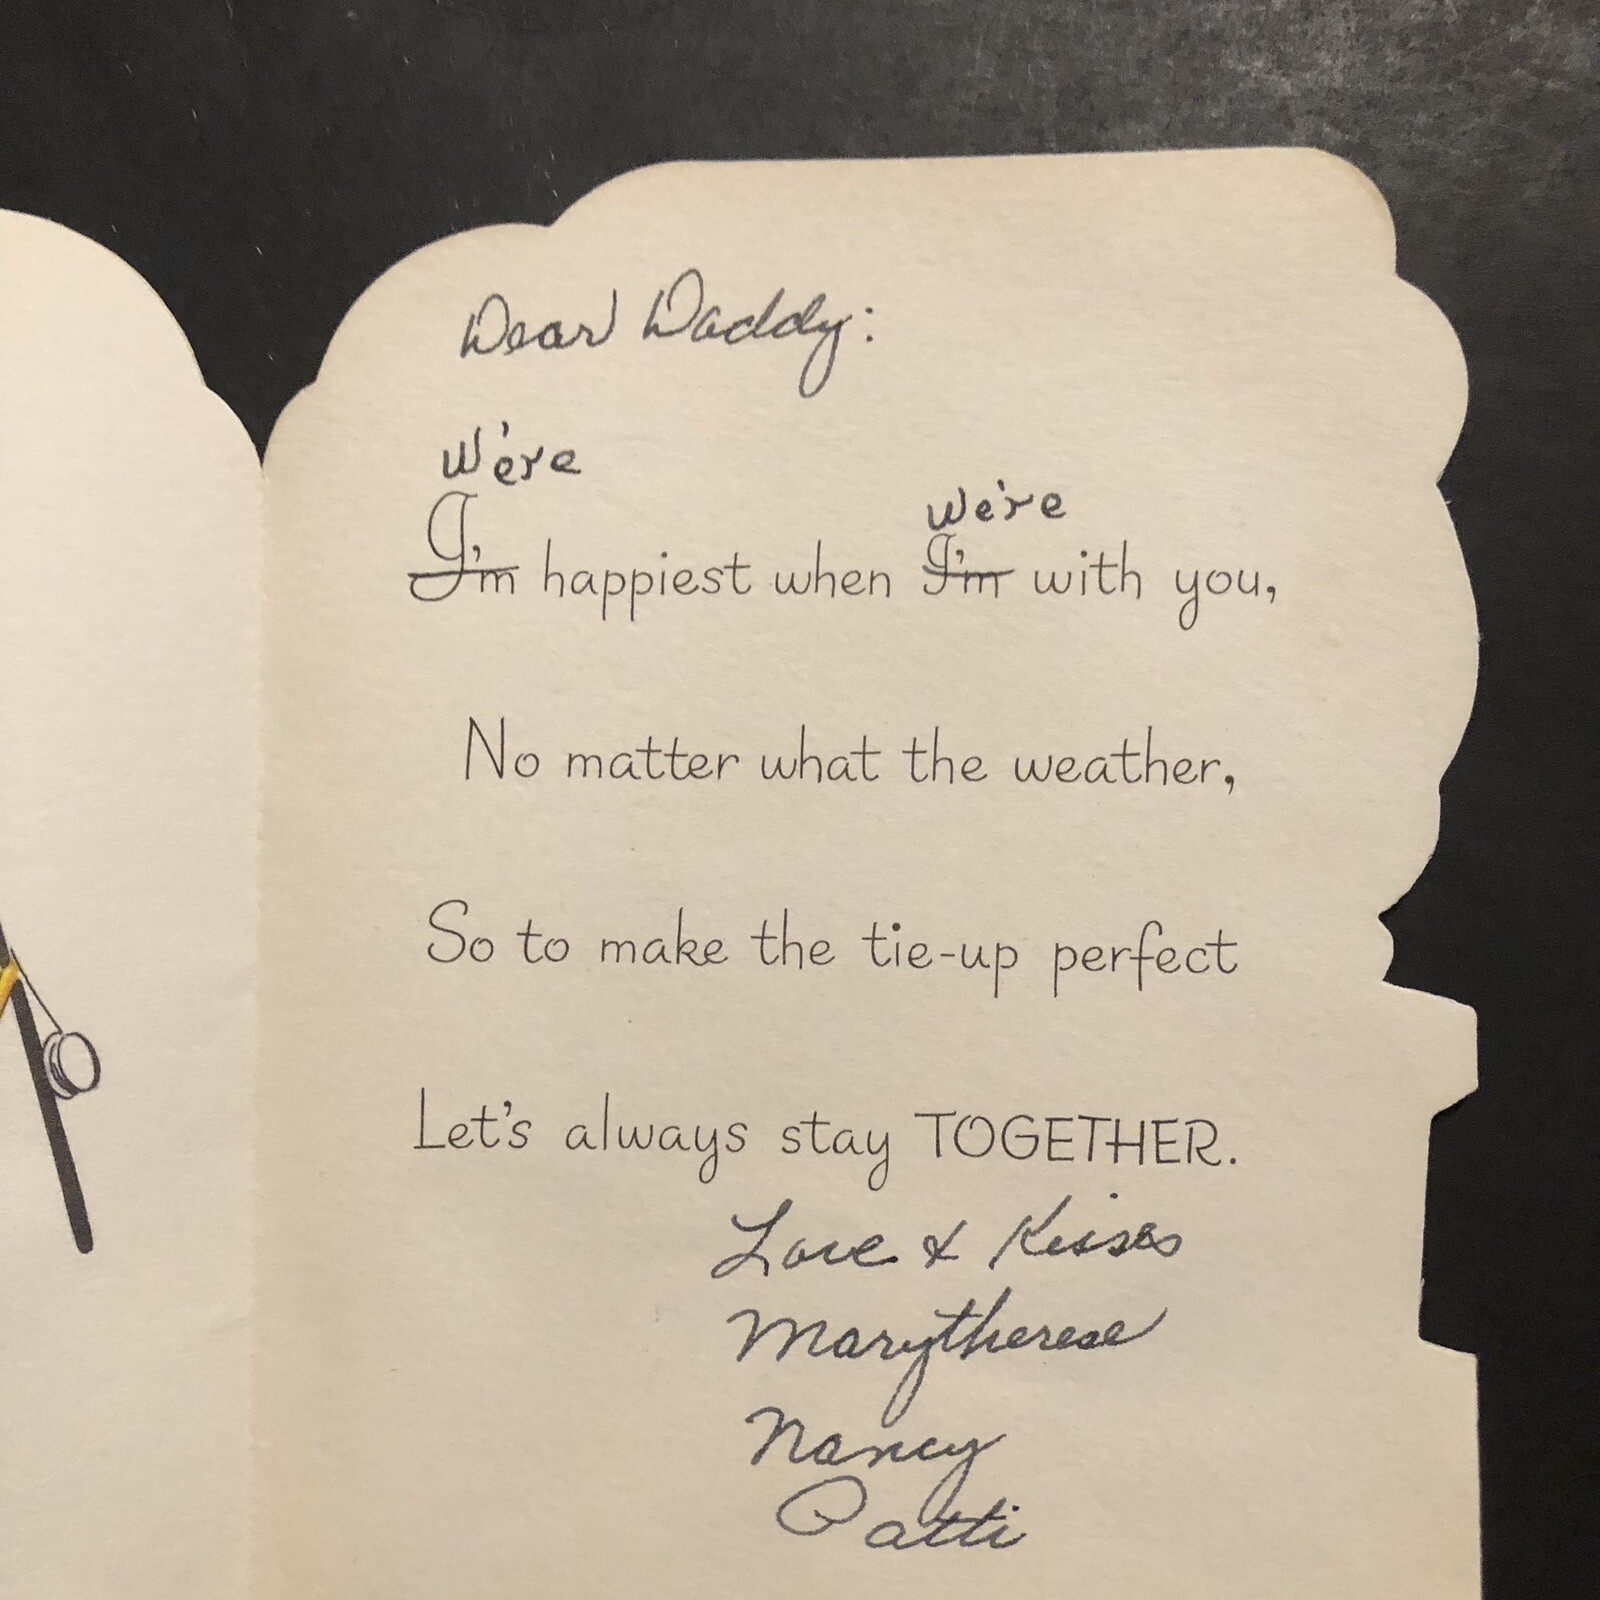 Dear Daddy:
We're We're
I'm happiest when I'm with you,
No matter what the weather,
So to make the tie-up perfect
Let's always stay TOGETHER.
Love & Kisses
Marytherese
Nancy
Patti